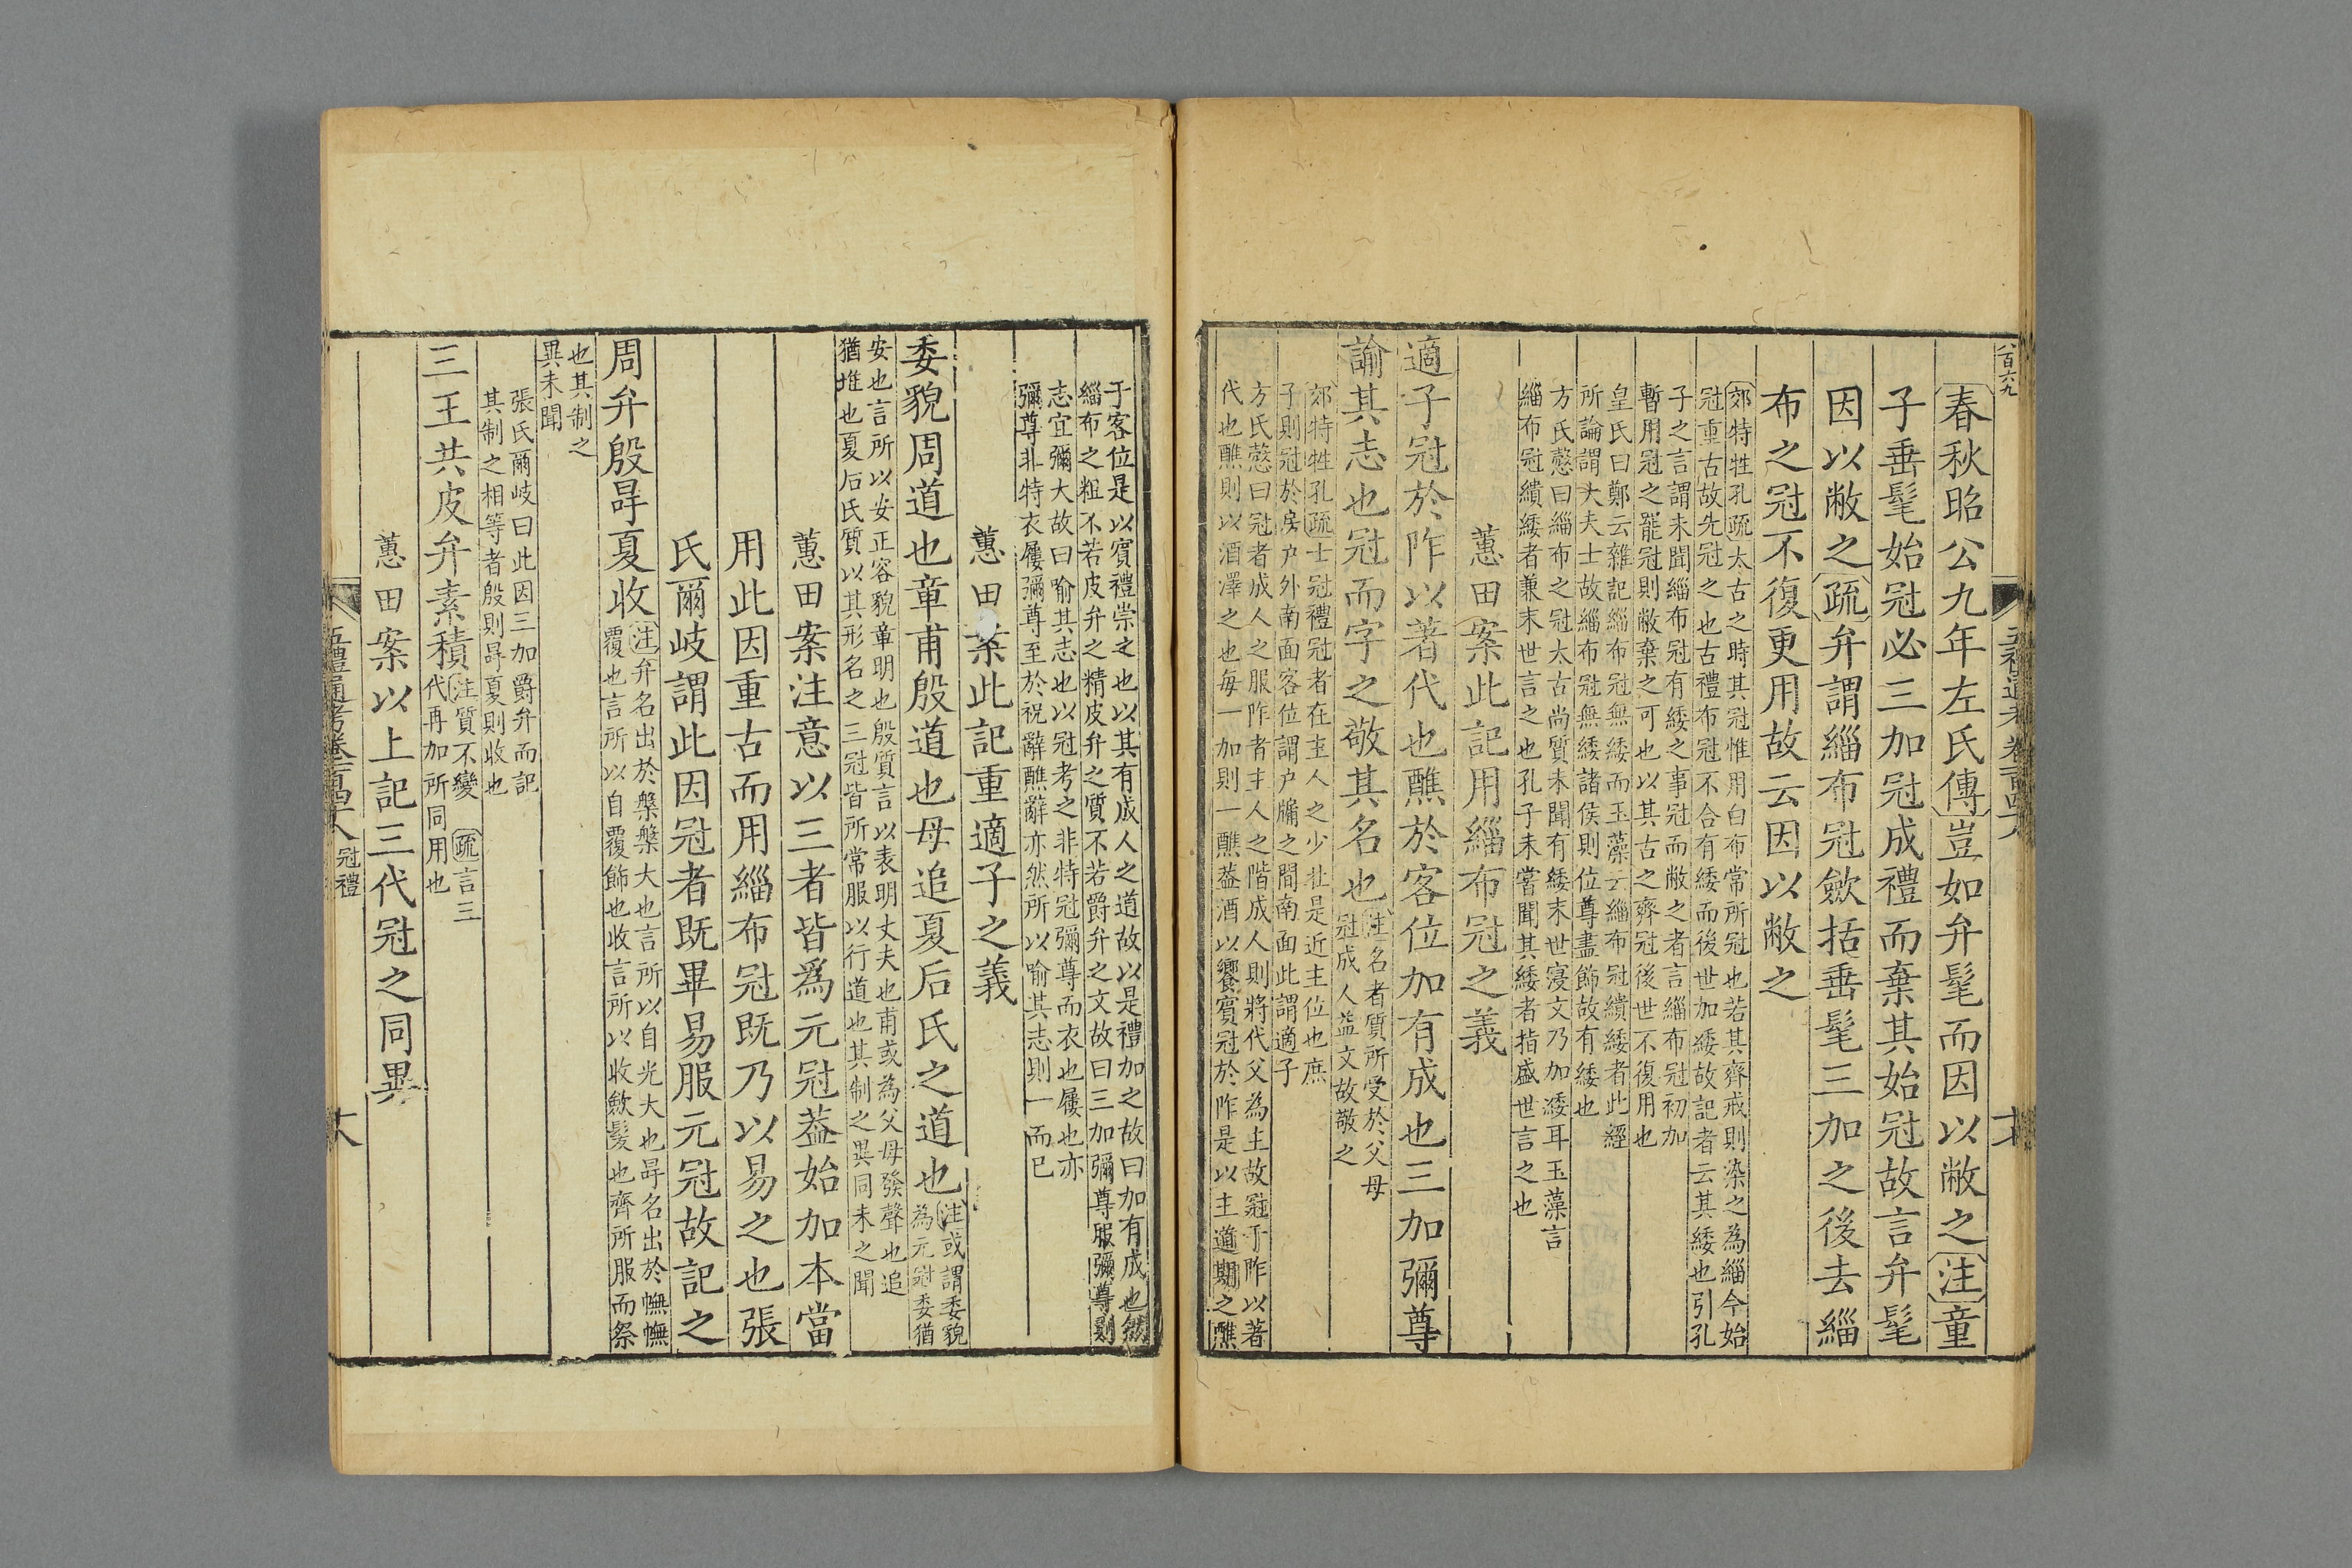 八百六九
五禮通考卷一百四十八
春秋昭公九年左氏傳豈如弁髦而因以敝之注童
子垂髦始冠必三加冠成禮而棄其始冠故言弁髦
因以敝之疏弁謂緇布冠歛括垂髦三加之後去緇
布之冠不復更用故云因以敝之
郊特牲孔疏太古之時其冠惟用白布常所冠也若其齊戒則染之為緇今始
冠重古故先冠之也古禮布冠不合有緌而後世加緌故記者云其緌也引孔
子之言謂未聞緇布冠有緌之事冠而敝之者言緇布冠初加
暫用冠之罷冠則敝棄之可也以其古之齊冠後世不復用也
皇氏曰鄭云雜記緇布冠無緌而玉藻云緇布冠繢緌者此經
所論謂大夫士故緇布冠無緌諸侯則位尊盡飾故有緌也
方氏慤曰緇布之冠太古尚質未聞有緌末世寖文乃加緌耳玉藻言
緇布冠繢緌者兼末世言之也孔子未嘗聞其緌者指盛世言之也
蕙田案此記用緇布冠之義
適子冠於阼以著代也醮於客位加有成也三加彌尊
諭其志也冠而字之敬其名也注名者質所受於父母
冠成人益文故敬之
郊特牲孔疏士冠禮冠者在主人之少壯是近主位也庶
子則冠於房户外南面客位謂户牖之間南面此謂適子
方氏慤曰冠者成人之服阼者主人之階成人則將代父為主故冠于阼以著
代也醮則以酒澤之也每一加則一醮葢酒以饗賓冠於阼是以主道期之醮
于客位是以賓禮崇之也以其有成人之道故以是禮加之故曰加有成也然
緇布之粗不若皮弁之精皮弁之質不若爵弁之文故曰三加彌尊服彌尊則
志宜彌大故曰喻其志也以冠考之非特冠彌尊而衣也屨也亦
彌尊非特衣屨彌尊至於祝辭醮辭亦然所以喻其志則一而已
蕙田案此記重適子之義
委貌周道也章甫殷道也毋追夏后氏之道也注或謂委貌
為元冠委猶
安也言所以安正容貌章明也殷質言以表明丈夫也甫或為父毋發聲也追
猶堆也夏后氏質以其形名之三冠皆所常服以行道也其制之異同未之聞
蕙田案注意以三者皆爲元冠葢始加本當
用此因重古而用緇布冠既乃以易之也張
氏爾岐謂此因冠者既畢易服元冠故記之
周弁殷冔夏收注弁名出於槃槃大也言所以自光大也冔名出於幠幠
覆也言所以自覆飾也收言所以收歛髮也齊所服而祭
也其制之
異未聞
張氏爾岐曰此因三加爵弁而記
其制之相等者殷則冔夏則收也
三王共皮弁素積注質不變 疏言三
代再加所同用也
蕙田案以上記三代冠之同異
五禮通考卷一百四十八 冠禮